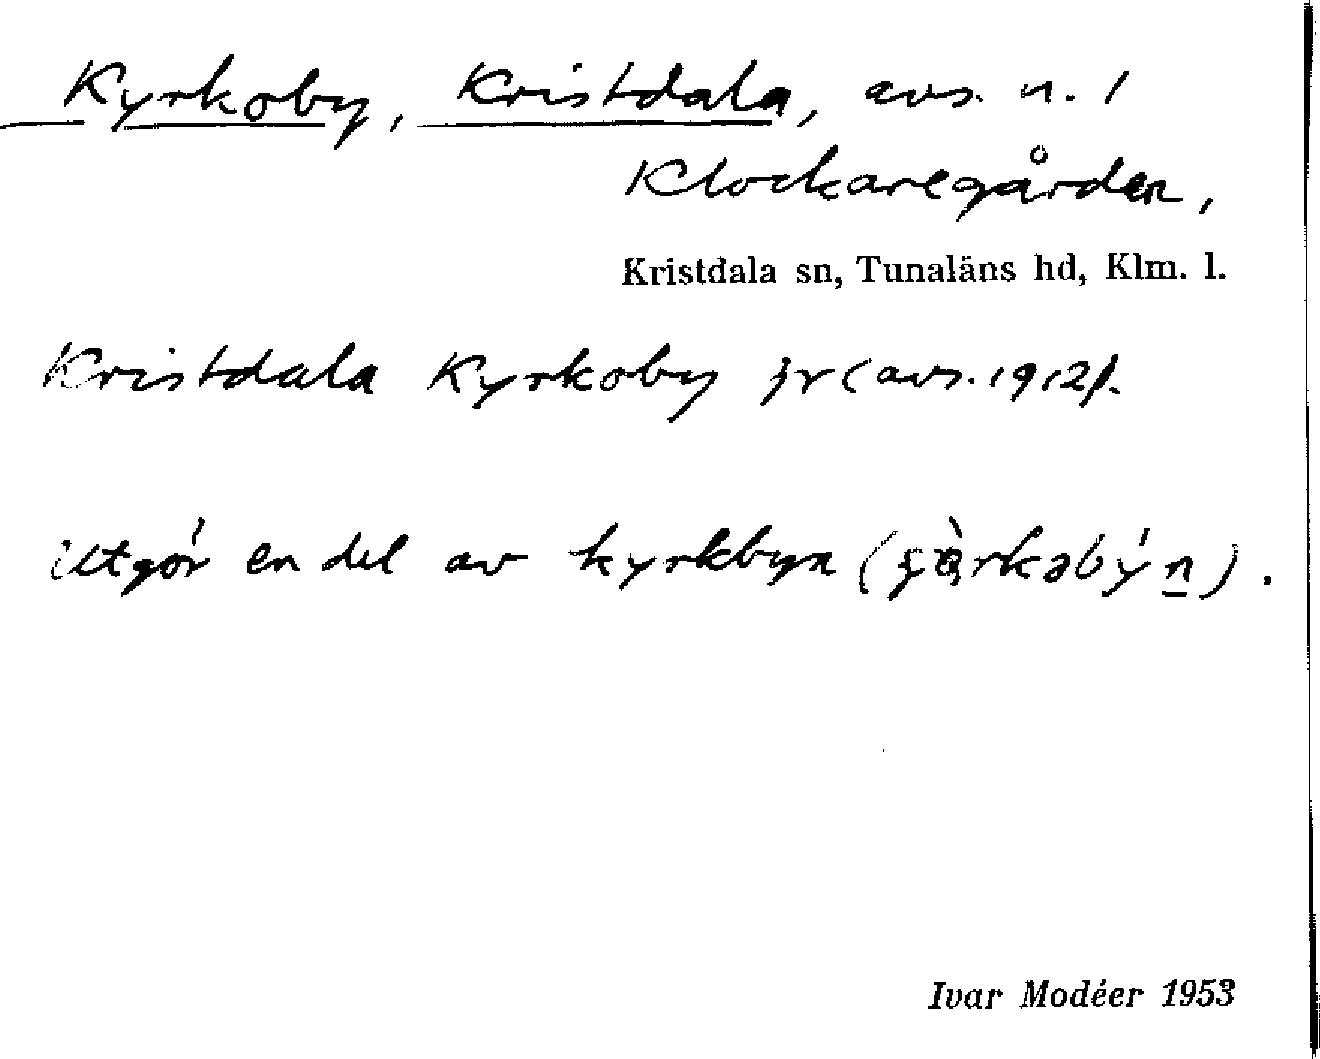 Kyrkoby, Kristdala, avs. n. 1
Klockaregården,
Kristdala sn, Tunaläns hd, Klm. l.
Kristdala Kyrkoby jr (avs. 1912).
Utgör en del av kyrkbyn
Ivar Modéer 1953